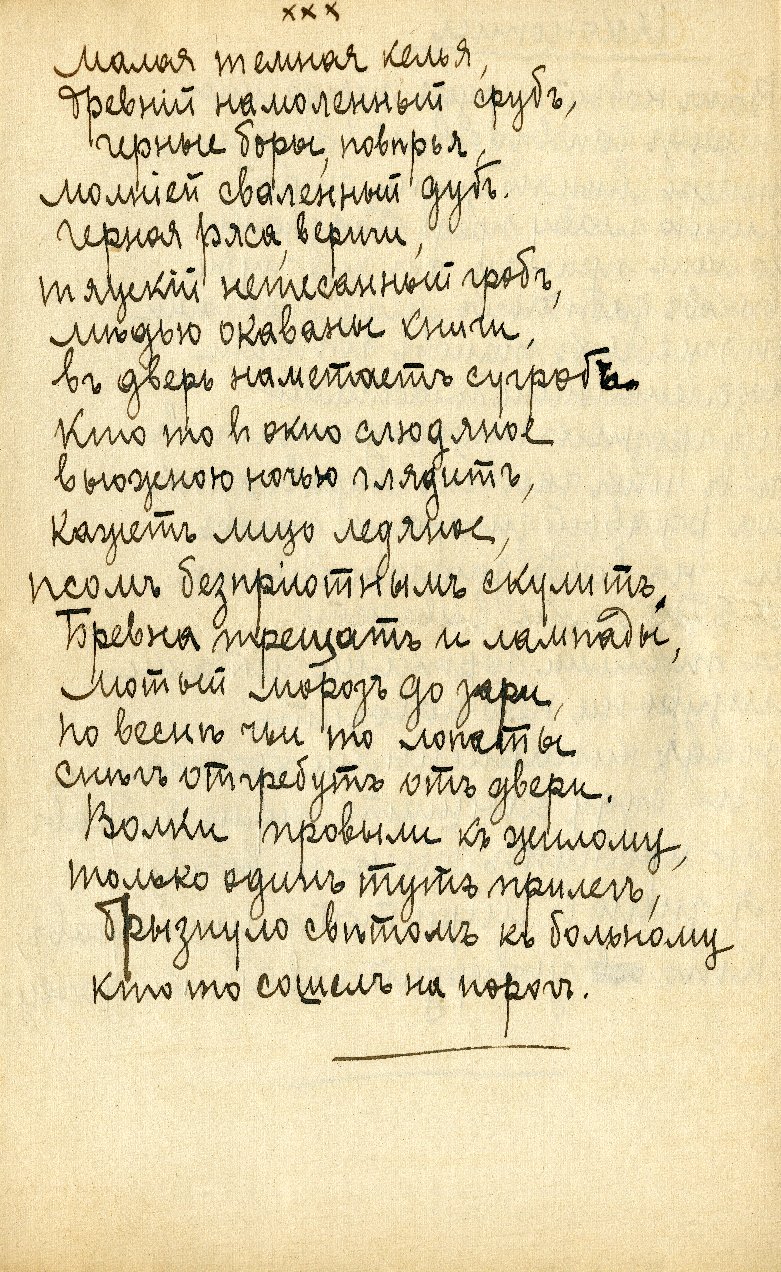 ххх
Малая темная келья,
древній намоленный срубъ,
черные боры, повѣрья,
молніей сваленный дубъ.
Черная ряса, вериги,
тяжскій нетесанный гробъ,
мѣдью окаваны книги,
въ дверь наметаетъ сугробъ.
Кто то в окно слюдяное
вьюжною ночью глядитъ,
кажетъ лицо ледяное,
псомъ безпріютнымъ скулитъ.
Бревна трещатъ и лампады,
лютый морозъ до зари,
по веснѣ чьи то лопаты
снѣгъ отгребутъ отъ двери.
Волки провыли къ жилому,
только одинъ тутъ прилегъ,
брызнуло свѣтомъ къ больному
кто то сошелъ на порогъ.